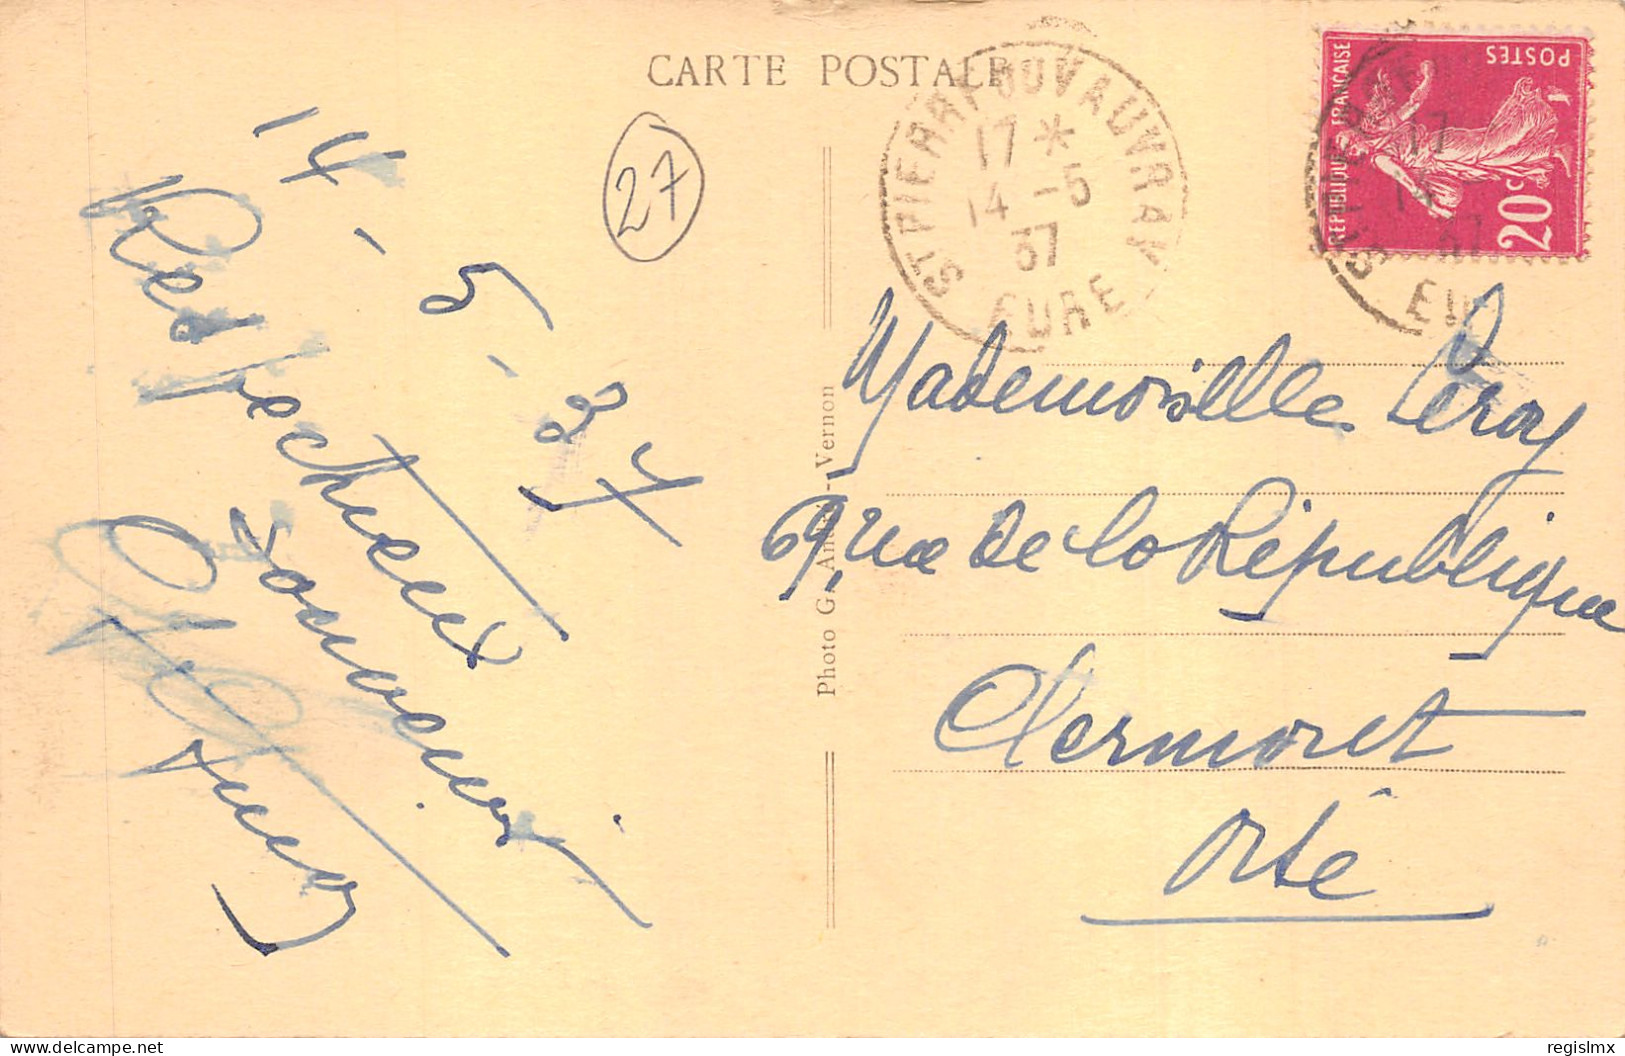 CARTE POSTALE
27
14 - 5 - 37
Respectueux
souvenir
ST PIERRE DU VAUVRAY
17 *
14 - 5
37
EURE
POSTES
REPUBLIQUE FRANÇAISE
20c
17
14
37
Mademoiselle Leroy
69, rue de la République
Clermont
Oise
Photo G. André - Vernon
delcampe.net
regislmx